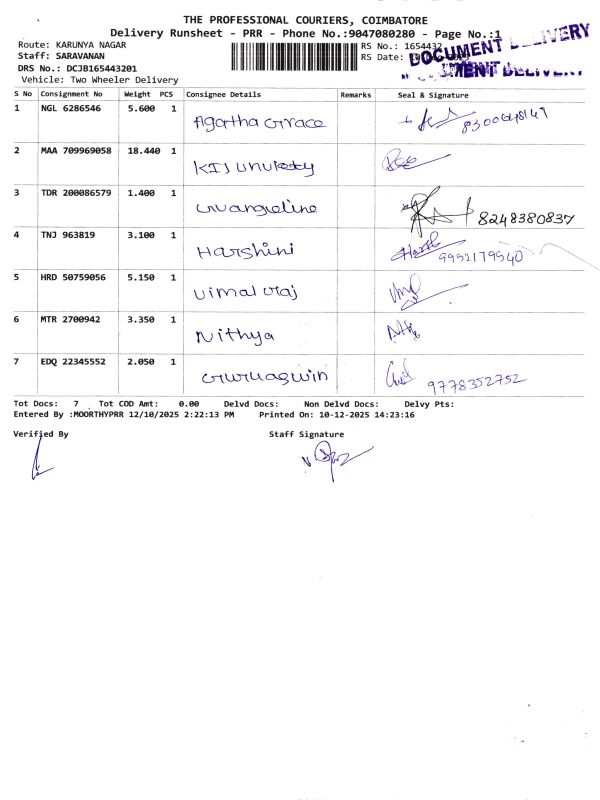 THE PROFESSIONAL COURIERS, COIMBATORE
Delivery Runsheet - PRR - Phone No.:9047080280 - Page No.:1
Route: KARUNYA NAGAR
RS No.: 1654432
DOCUMENT DELIVERY
Staff: SARAVANAN
RS Date:
DRS No.: DCJB165443201
Vehicle: Two Wheeler Delivery
S No Consignment No Weight PCS Consignee Details Remarks Seal & Signature
1 NGL 6286546 5.600 1 Agatha Grace
2 MAA 709969058 18.440 1
3 TDR 200086579 1.400 1 Evangeline 8248380837
4 TNJ 963819 3.100 1 Harshini 9952179540
5 HRD 50759056 5.150 1 Vimal Raj
6 MTR 2700942 3.350 1 Nithya
7 EDQ 22345552 2.050 1 9778352752
Tot Docs: 7 Tot COD Amt: 0.00 Delvd Docs: Non Delvd Docs: Delvy Pts:
Entered By :MOORTHYPRR 12/10/2025 2:22:13 PM Printed On: 10-12-2025 14:23:16
Verified By Staff Signature